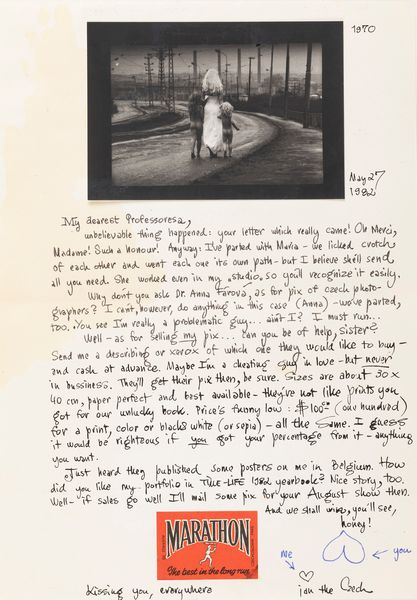 1970
May 27
1982
My dearest Professoresa,
unbelievable thing happened: your letter which really came! Oh Merci,
Madame! Such a honour! Anyway: I've parted with Maria - we licked crotch
of each other and went each one its own path - but I believe she'll send
all you need. She worked even in my "studio" so you'll recognize it easily.
Why don't you ask Dr. Anna Farová, as for pix of czech photo-
graphers? I can't, however, do anything in this case (Anna) - we've parted,
too. You see I'm really a problematic guy... ain't I? I must run...
Well - as for selling my pix... can you be of help, sister?
Send me a describing or xerox of which one they would like to buy -
and cash at advance. Maybe I'm a cheating guy in love - but never
in bussiness. They'll get their pix then, be sure. Sizes are about 30 x
40 cm, paper perfect and best available - they're not like prints you
got for our unlucky book. Price's funny low: $100 (one hundred)
for a print, color or black & white (or sepia) - all the same. I guess
it would be righteous if you got your percentage from it - anything
you want.
Just heard they published some posters on me in Belgium. How
did you like my portfolio in TIME-LIFE 1982 yearbook? Nice story, too.
Well - if sales go well I'll mail some pix for your August show then.
And we shall wine, you'll see,
honey!
MARATHON
The best in the long run
me
you
Kissing you, everywhere
jan the Czech